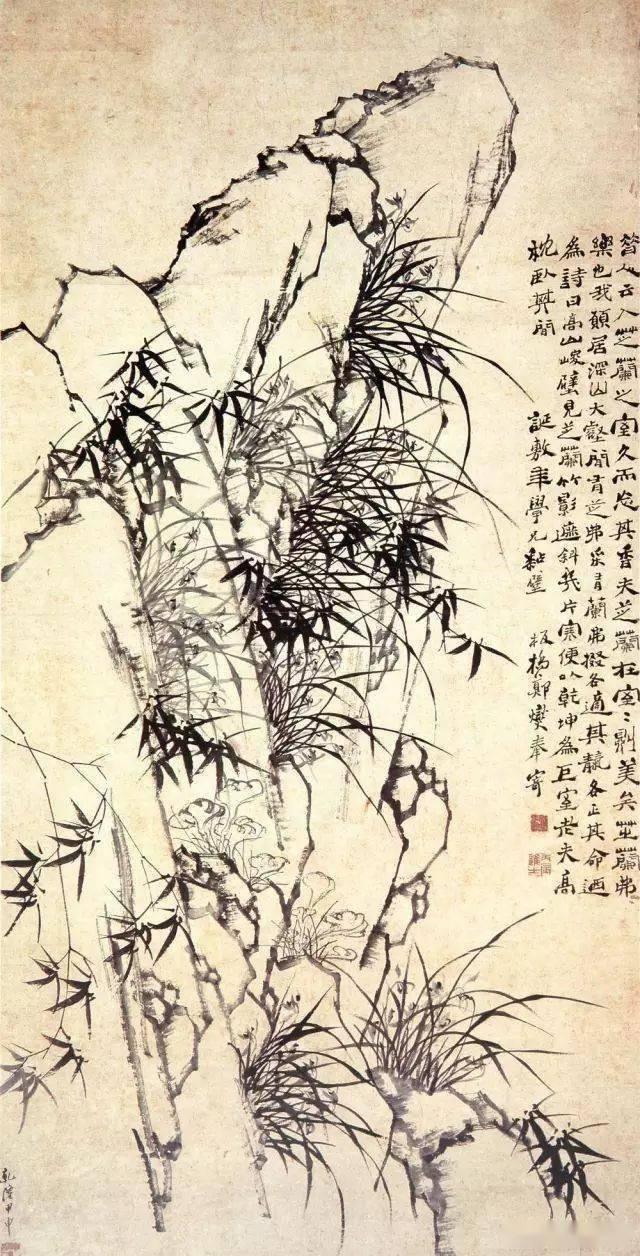 昔人云入芝蘭之室久而忘其香夫芝蘭在室〻則美矣芝蘭弗
樂也我願居深山大壑間有芝弗采有蘭弗掇各適其各正其命迺
為詩曰高山峻壁見芝蘭竹影遮斜幾片寒便以乾坤為巨室老夫高
枕臥其間 誕敷年學兄黏壁 板橋鄭燮奉寄
乾隆甲申